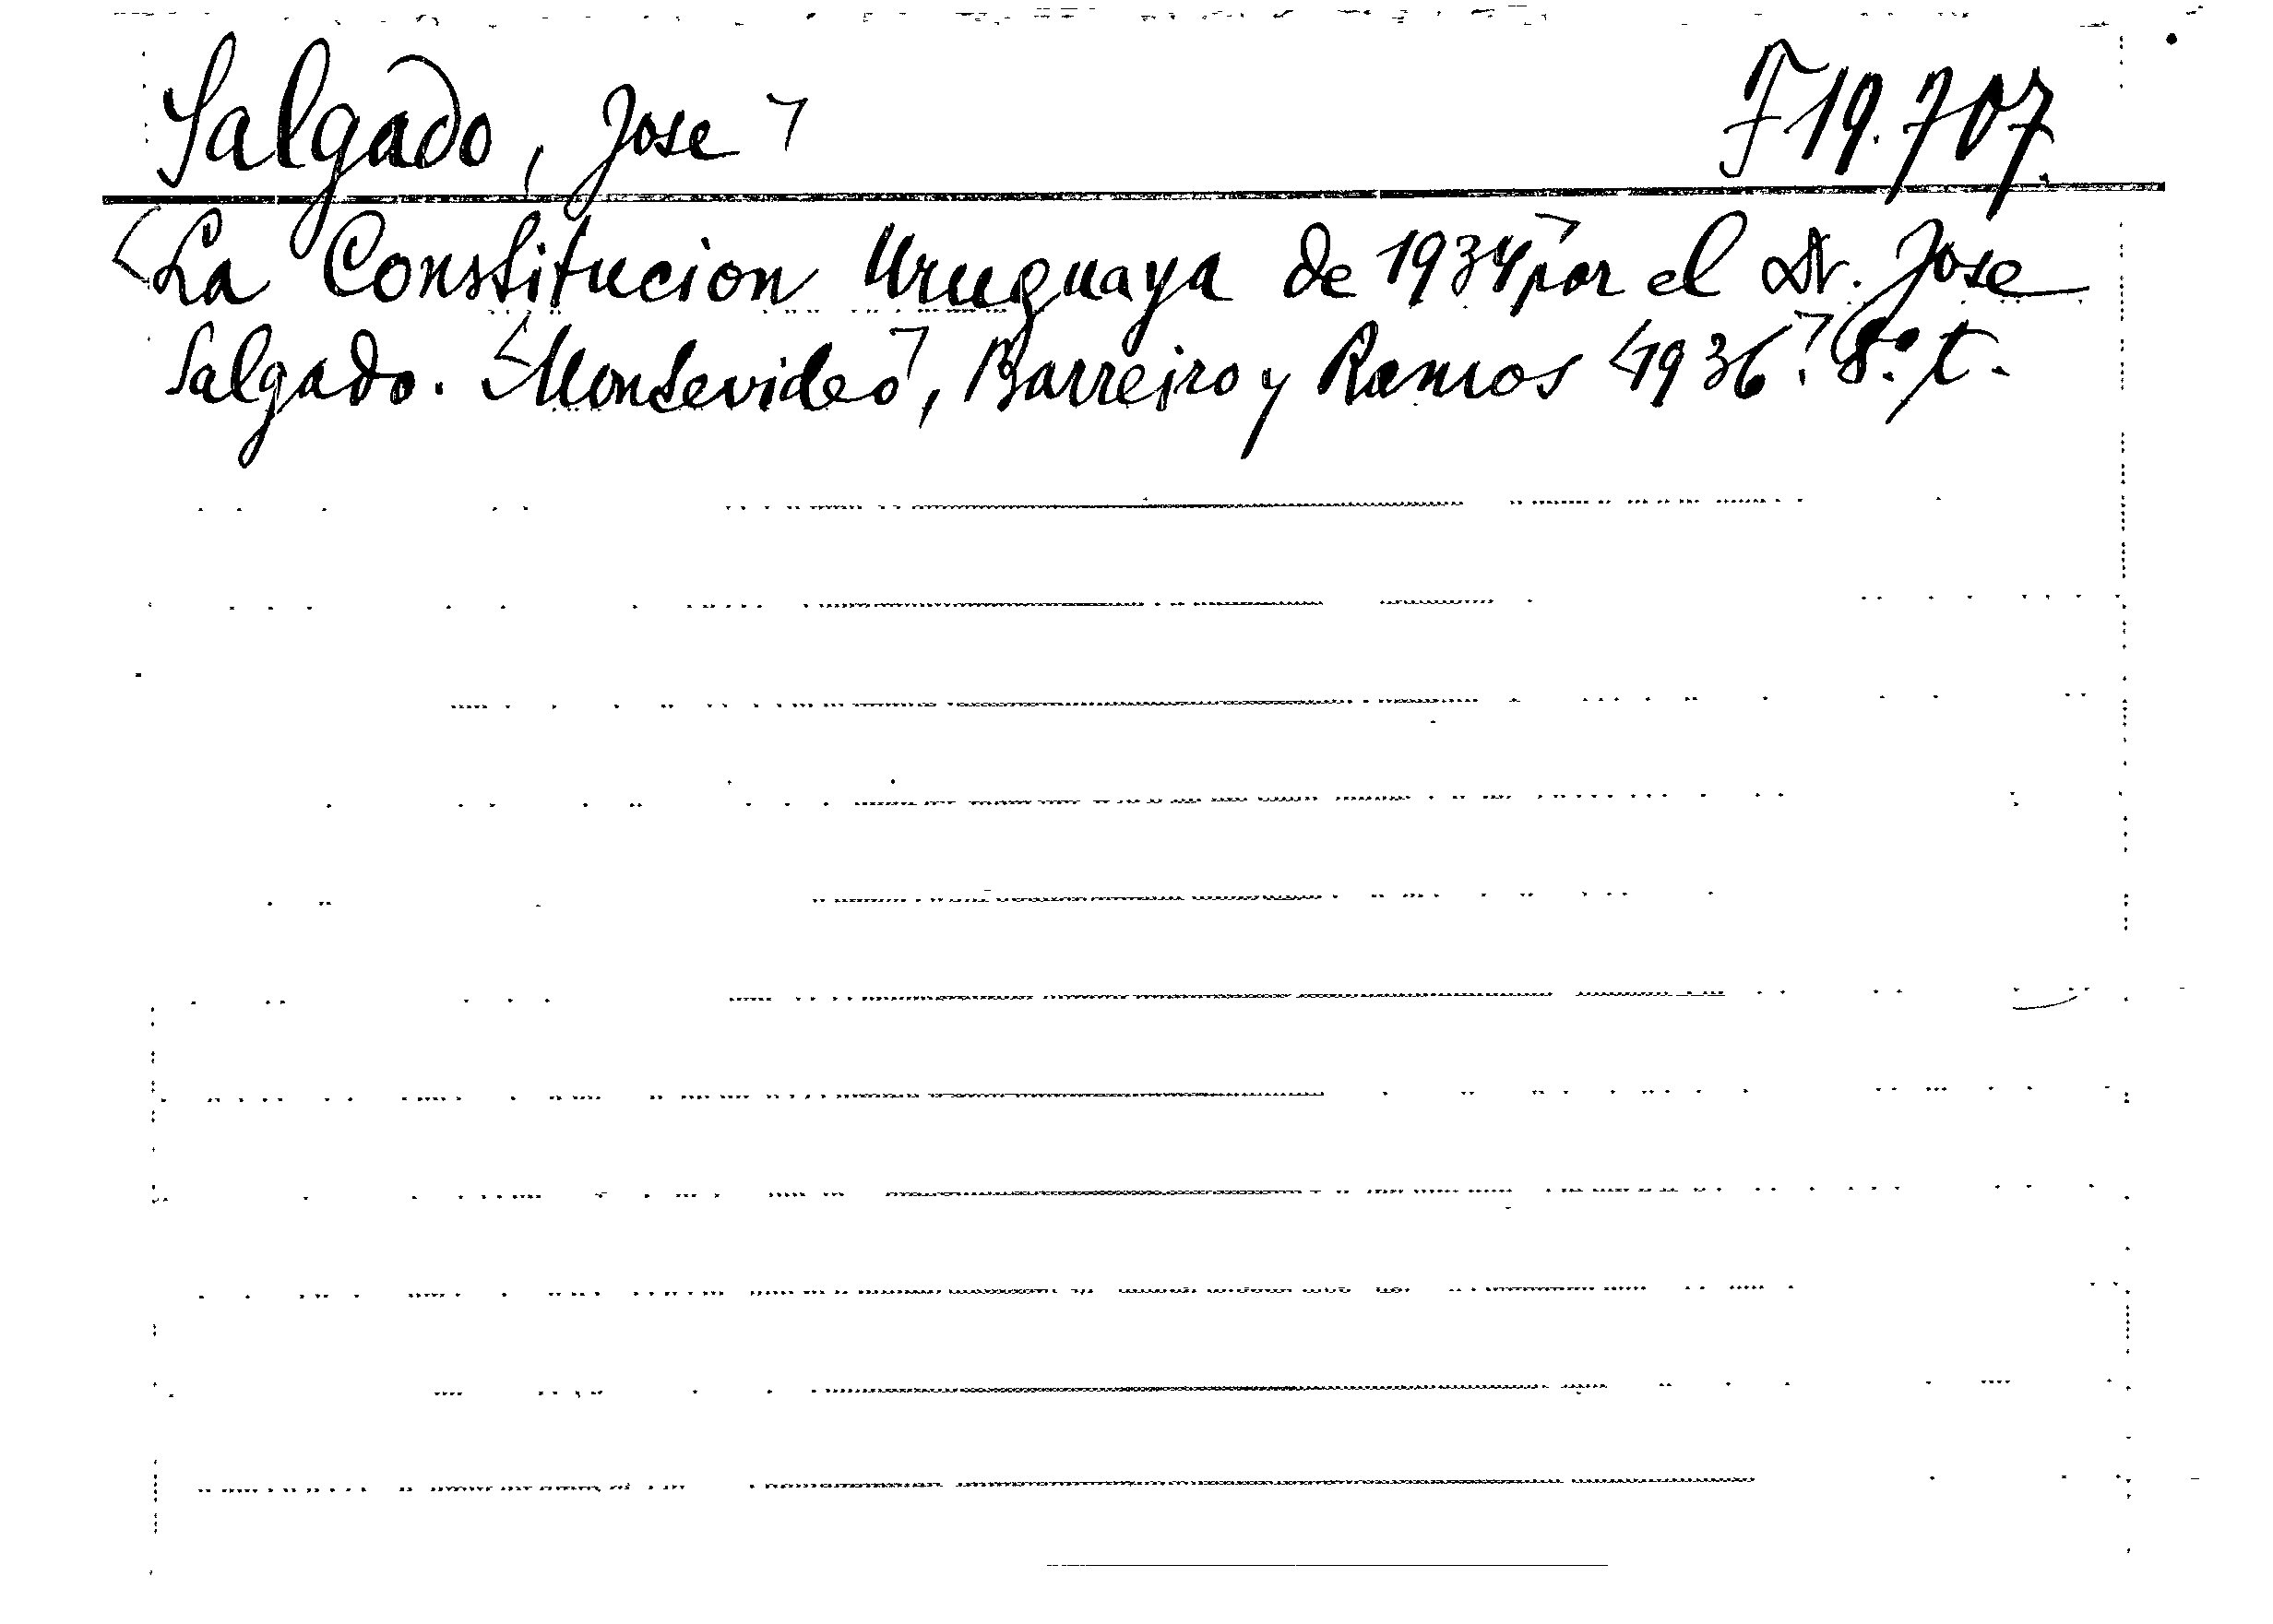 Salgado, Jose F 19.707.
La Constitucion Uruguaya de 1934 por el Dr. Jose
Salgado. Montevideo, Barreiro y Ramos 1936. 8.º t.